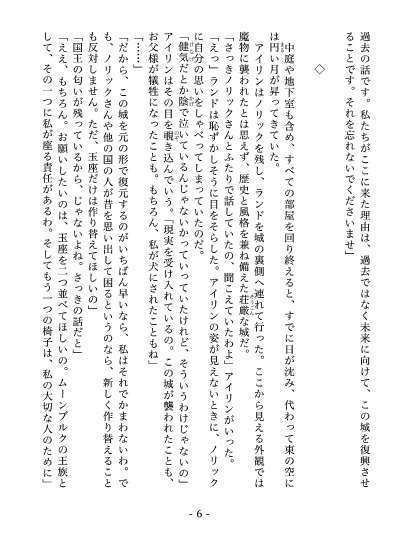 過去の話です。私たちがここに来た理由は、過去ではなく未来に向けて、この城を復興させ
ることです。それを忘れないでくださいませ」
◇
中庭や地下室も含め、すべての部屋を回り終えると、すでに日が沈み、代わって東の空に
は円い月が昇ってきていた。
アイリンはノリックを残し、ランドを城の裏側へ連れて行った。ここから見える外観では
魔物に襲われたとは思えず、歴史と風格を兼ね備えた荘厳な城だ。
「さっきノリックさんとふたりで話していたの、聞こえていたわよ」アイリンがいった。
「えっ」ランドは恥ずかしそうに目をそらした。アイリンの姿が見えないときに、ノリック
に自分の思いをしゃべってしまっていたのだ。
「健気だとか陰で泣いているんじゃないかっていっていたけれど、そういうわけじゃないの」
アイリンはその目を覗き込んでいう。「現実を受け入れているの。この城が襲われたことも、
お父様が犠牲になったことも。もちろん、私が犬にされたこともね」
「……」
「だから、この城を元の形で復元するのがいちばん早いなら、私はそれでかまわないわ。で
も、ノリックさんや他の国の人が昔を思い出して困るというのなら、新しく作り替えること
も反対しません。ただ、玉座だけは作り替えてほしいの」
「国王の匂いが残っているから、じゃないよね。さっきの話だと」
「ええ、もちろん。お願いしたいのは、玉座を二つ並べてほしいの。ムーンブルクの王族と
して、その一つに私が座る責任があるわ。そしてもう一つの椅子は、私の大切な人のために」
- 6 -